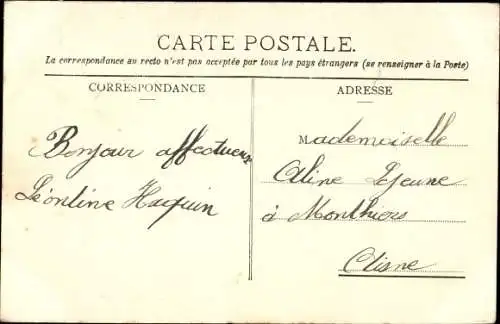 CARTE POSTALE.
La correspondance au recto n'est pas acceptée par tous les pays étrangers (se renseigner à la Poste)
CORRESPONDANCE
ADRESSE
Bonjour affectueux
Léontine Haquin
Mademoiselle
Aline Lejeune
à Monthiers
Aisne